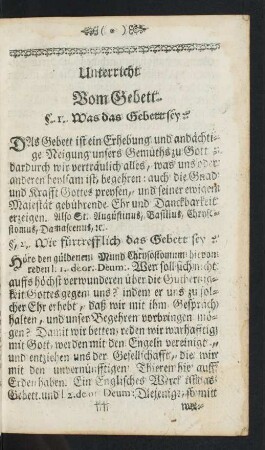 ( o )
Unterricht
Vom Gebett.
§. 1. Was das Gebett sey?
DAs Gebett ist ein Erhebung und andächti-
ge Neigung unsers Gemüths zu Gott /
dardurch wir verträulich alles, was uns oder
anderen heylsam ist, begehren: auch die Gnad
und Krafft Gottes preysen, und seiner ewigen
Majestät gebührende Ehr und Danckbarkeit
erzeigen. Also St. Augustinus, Basilius, Chryso-
stomus, Damascenus, ꝛc.
§. 2. Wie fürtrefflich das Gebett sey?
Höre den güldenen Mund Chrysostomum hievon
reden l. 1. de or. Deum. Wer soll sich nicht
auffs höchst verwunderen über die Gutherzig-
keit Gottes gegen uns? indem er uns zu sol-
cher Ehr erhebt, daß wir mit ihm Gespräch
halten, und unser Begehren vorbringen mö-
gen? Damit wir betten, reden wir warhafftig
mit Gott, werden mit den Engeln vereinigt,
und entziehen uns der Gesellschafft, die wir
mit den unvernünfftigen Thieren hie auff
Erden haben. Ein Englisches Werck ist das
Gebett. und l. 2. de or. Deum: Diejenige, so mit